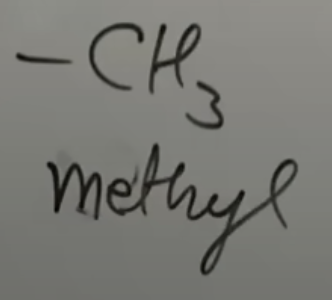 -CH₃
methyl